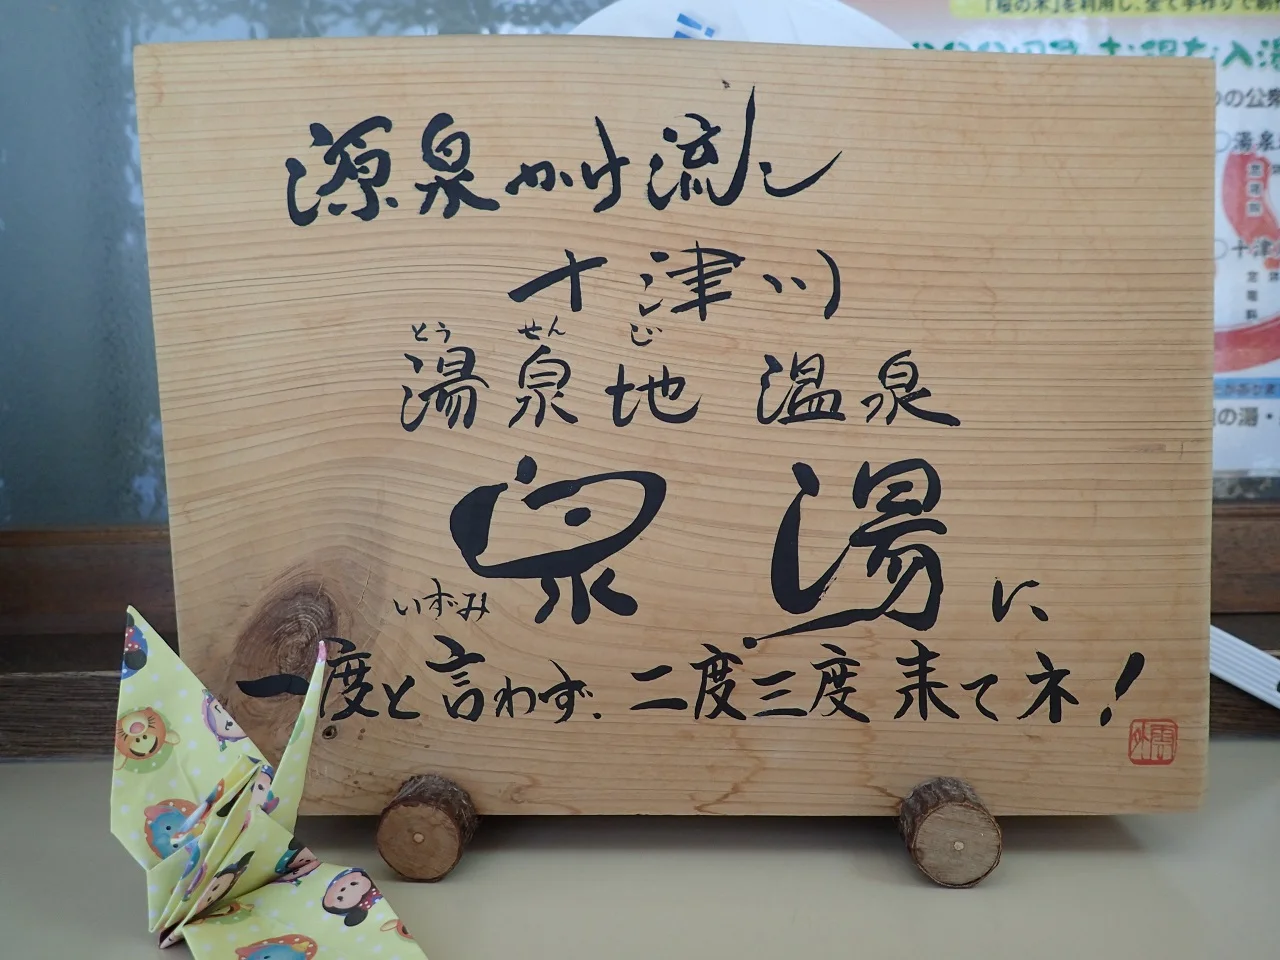 源泉かけ流し
十津川
とう せん じ
湯泉地 温泉
泉湯に
いずみ
一度と言わず、二度三度来てネ!